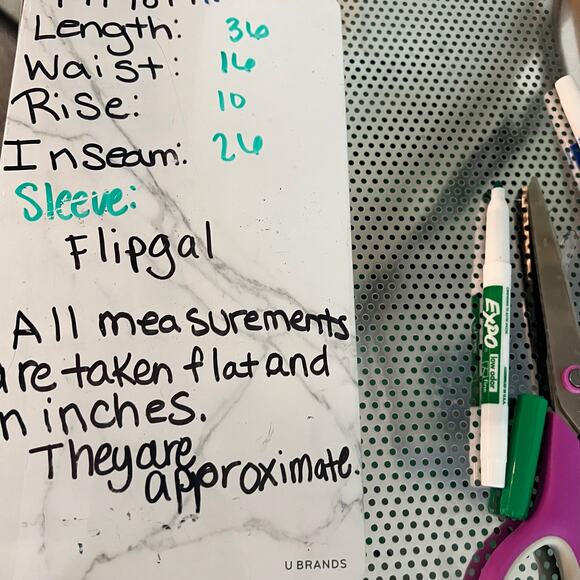 Length: 36
Waist: 16
Rise: 10
Inseam: 26
Sleeve:
Flipgal
All measurements
are taken flat and
n inches.
They are
approximate.
U BRANDS
EXPO
low odor